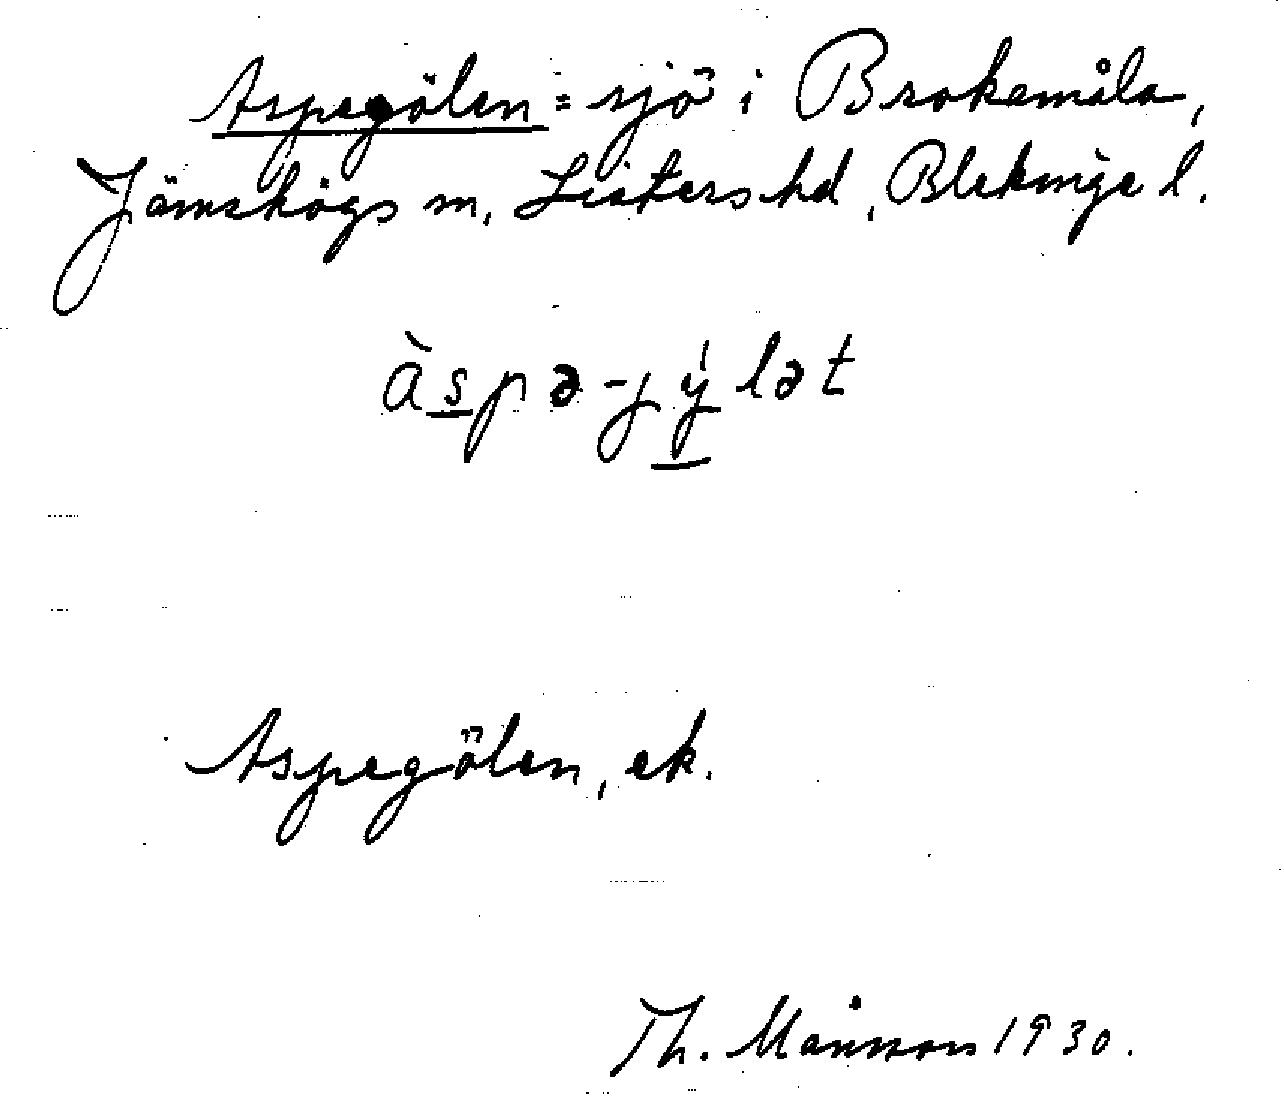 Aspegölen = sjö i Brokamåla,
Jämshögs sn, Listers hd, Blekinge l.
àspə-jýlət
Aspegölen, ek.
Th. Månsson 1930.